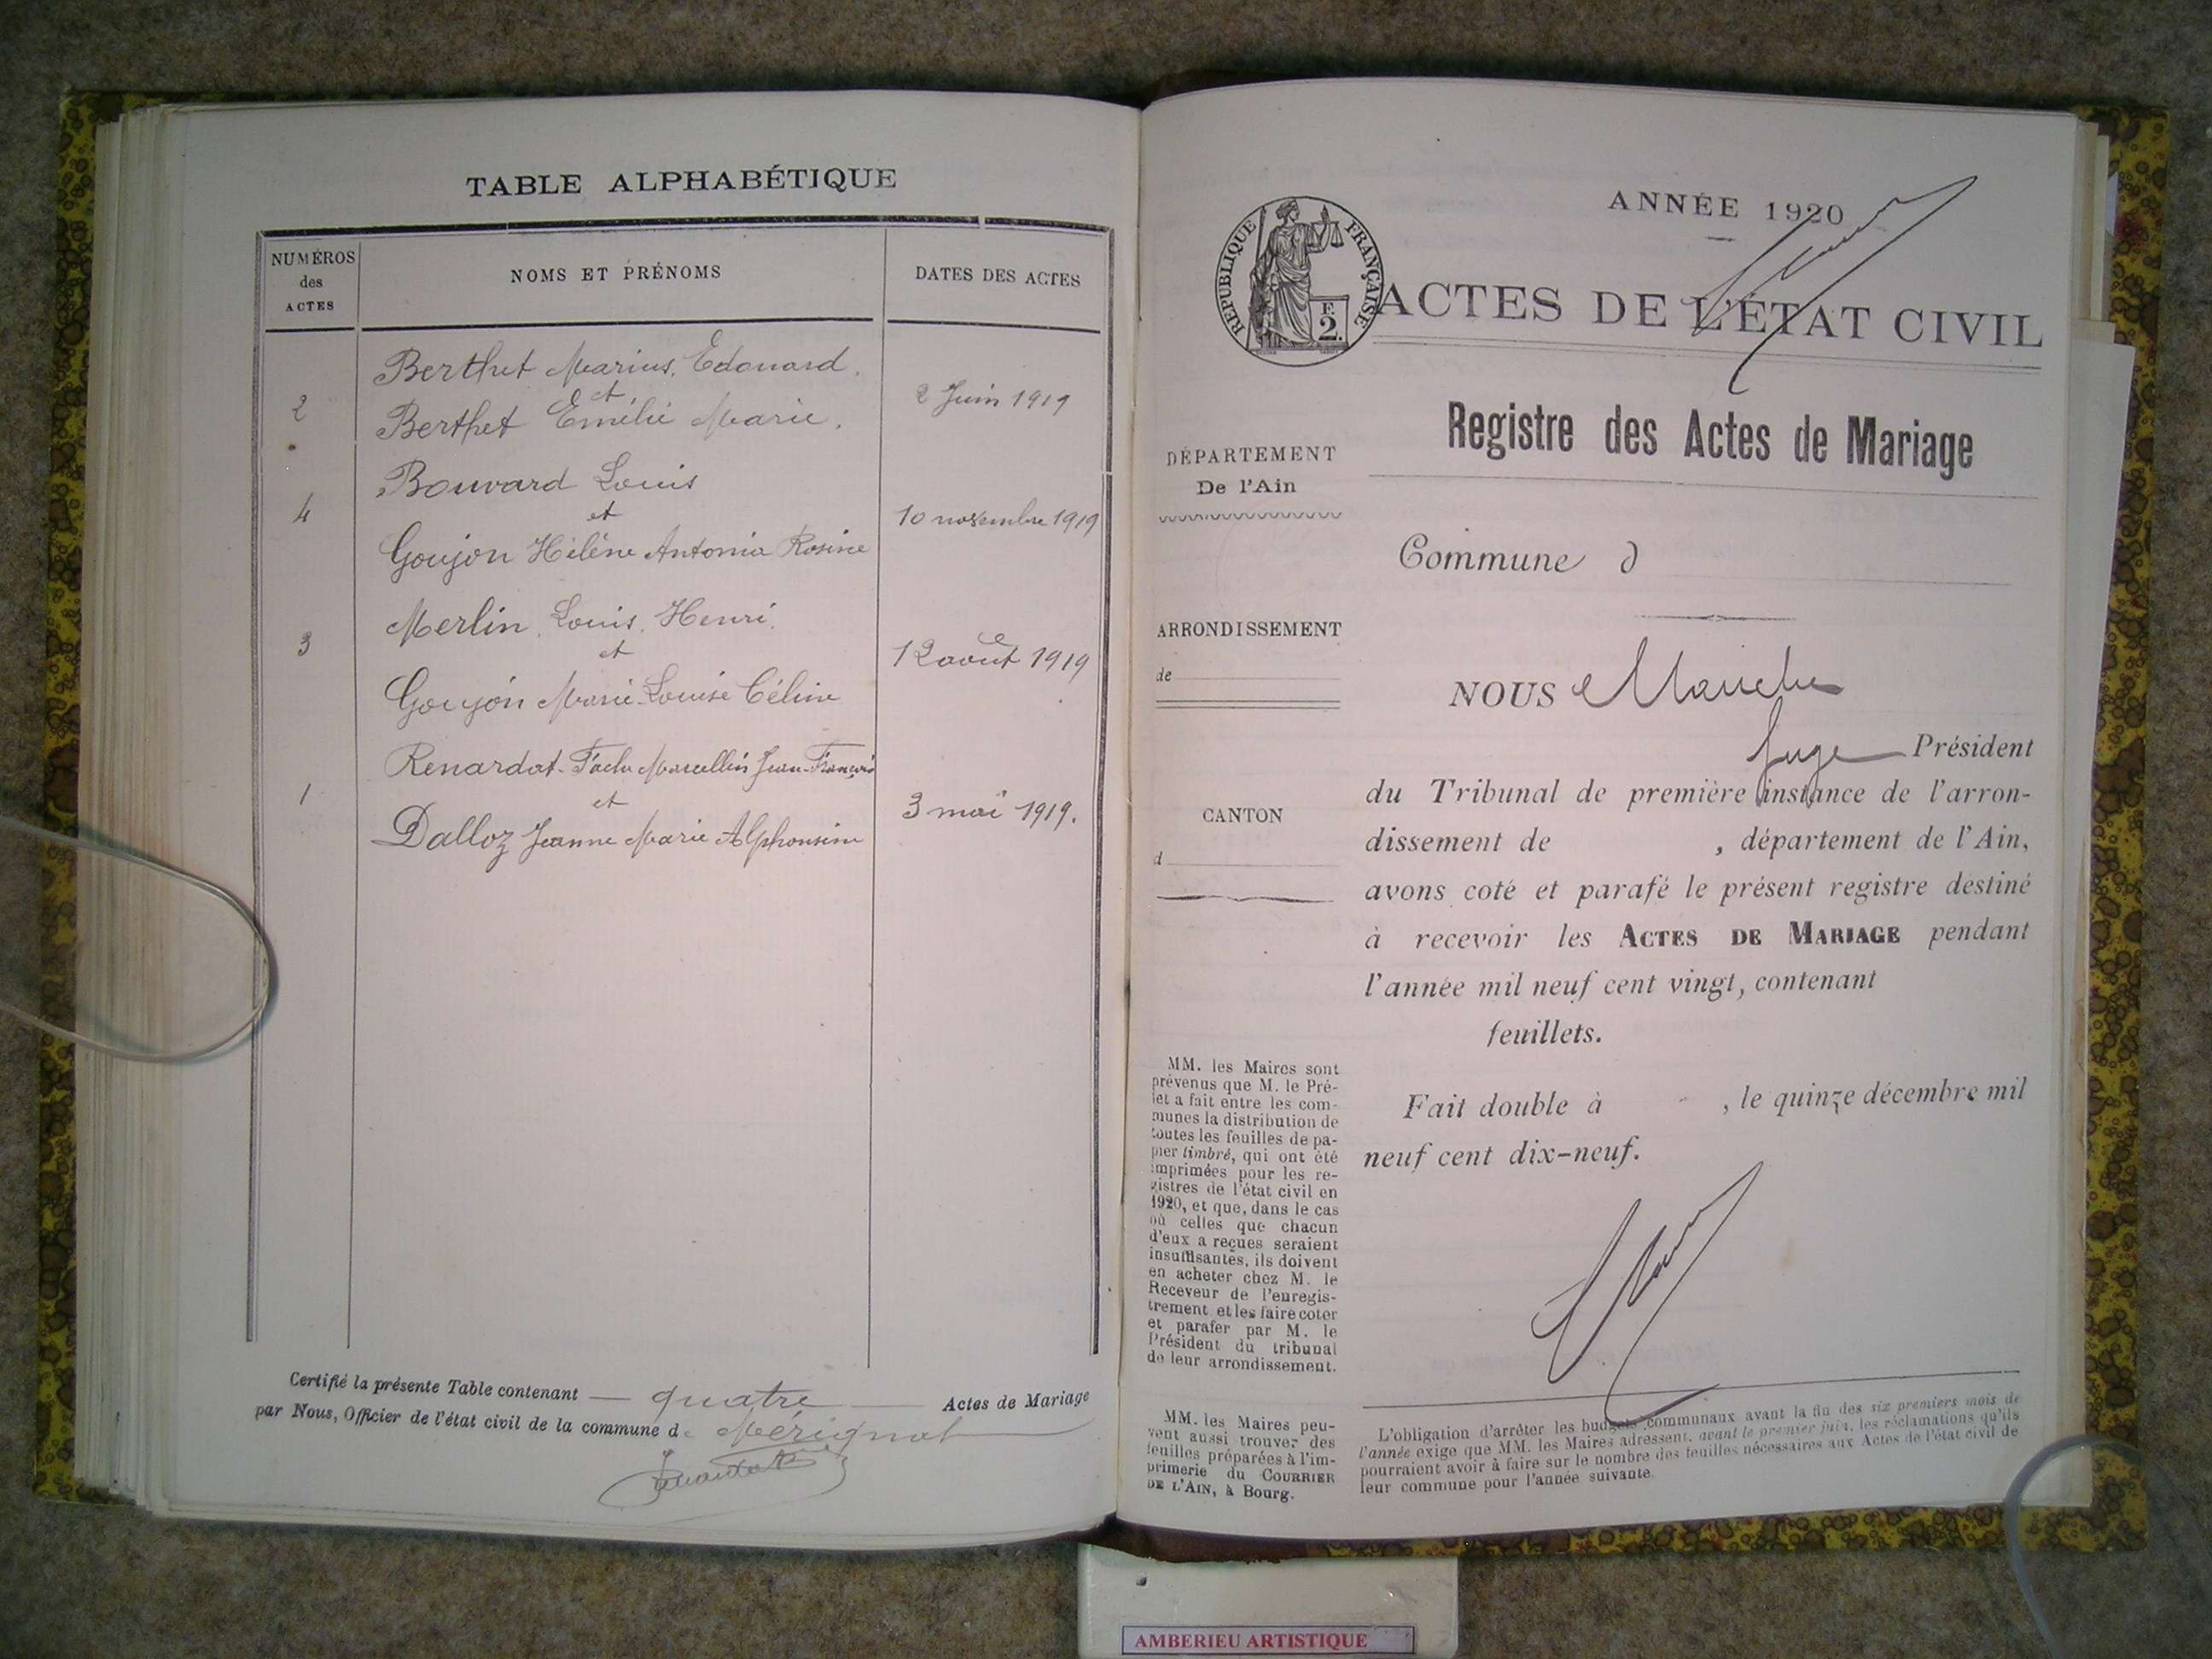 TABLE ALPHABÉTIQUE
NUMÉROS
des
ACTES
NOMS ET PRÉNOMS
DATES DES ACTES
Berthet Marius, Edouard.
et
2
2 Juin 1919
Berthet Emélie Marie.
Bouvard Louis
et
4
10 novembre 1919
Goujon Hélène Antonia Rosine
Merlin, Louis, Henri.
et
3
12 août 1919
Goujon Marie-Louise Céline
Renardat-Fache Marcellin Jean-François
et
1
3 mai 1919.
Dalloz Jeanne Marie Alphonsine
Certifié la présente Table contenant — quatre — Actes de Mariage
par Nous, Officier de l'état civil de la commune d e Mérignat
ANNÉE 1920
RÉPUBLIQUE FRANÇAISE
F.
2.
ACTES DE L'ÉTAT CIVIL
Registre des Actes de Mariage
DÉPARTEMENT
De l'Ain
Commune d
ARRONDISSEMENT
de
CANTON
d
NOUS
Juge Président
du Tribunal de première instance de l'arron-
dissement de , département de l'Ain,
avons coté et parafé le présent registre destiné
à recevoir les ACTES DE MARIAGE pendant
l'année mil neuf cent vingt, contenant
feuillets.
Fait double à , le quinze décembre mil
neuf cent dix-neuf.
MM. les Maires sont
prévenus que M. le Pré-
fet a fait entre les com-
munes la distribution de
toutes les feuilles de pa-
pier timbré, qui ont été
imprimées pour les re-
gistres de l'état civil en
1920, et que, dans le cas
où celles que chacun
d'eux a reçues seraient
insuffisantes, ils doivent
en acheter chez M. le
Receveur de l'enregis-
trement et les faire coter
et parafer par M. le
Président du tribunal
de leur arrondissement.
MM. les Maires peu-
vent aussi trouver des
feuilles préparées à l'im-
primerie du COURRIER
DE L'AIN, à Bourg.
L'obligation d'arrêter les budgets communaux avant la fin des six premiers mois de
l'année exige que MM. les Maires adressent, avant le premier juin, les réclamations qu'ils
pourraient avoir à faire sur le nombre des feuilles nécessaires aux Actes de l'état civil de
leur commune pour l'année suivante.
AMBERIEU ARTISTIQUE